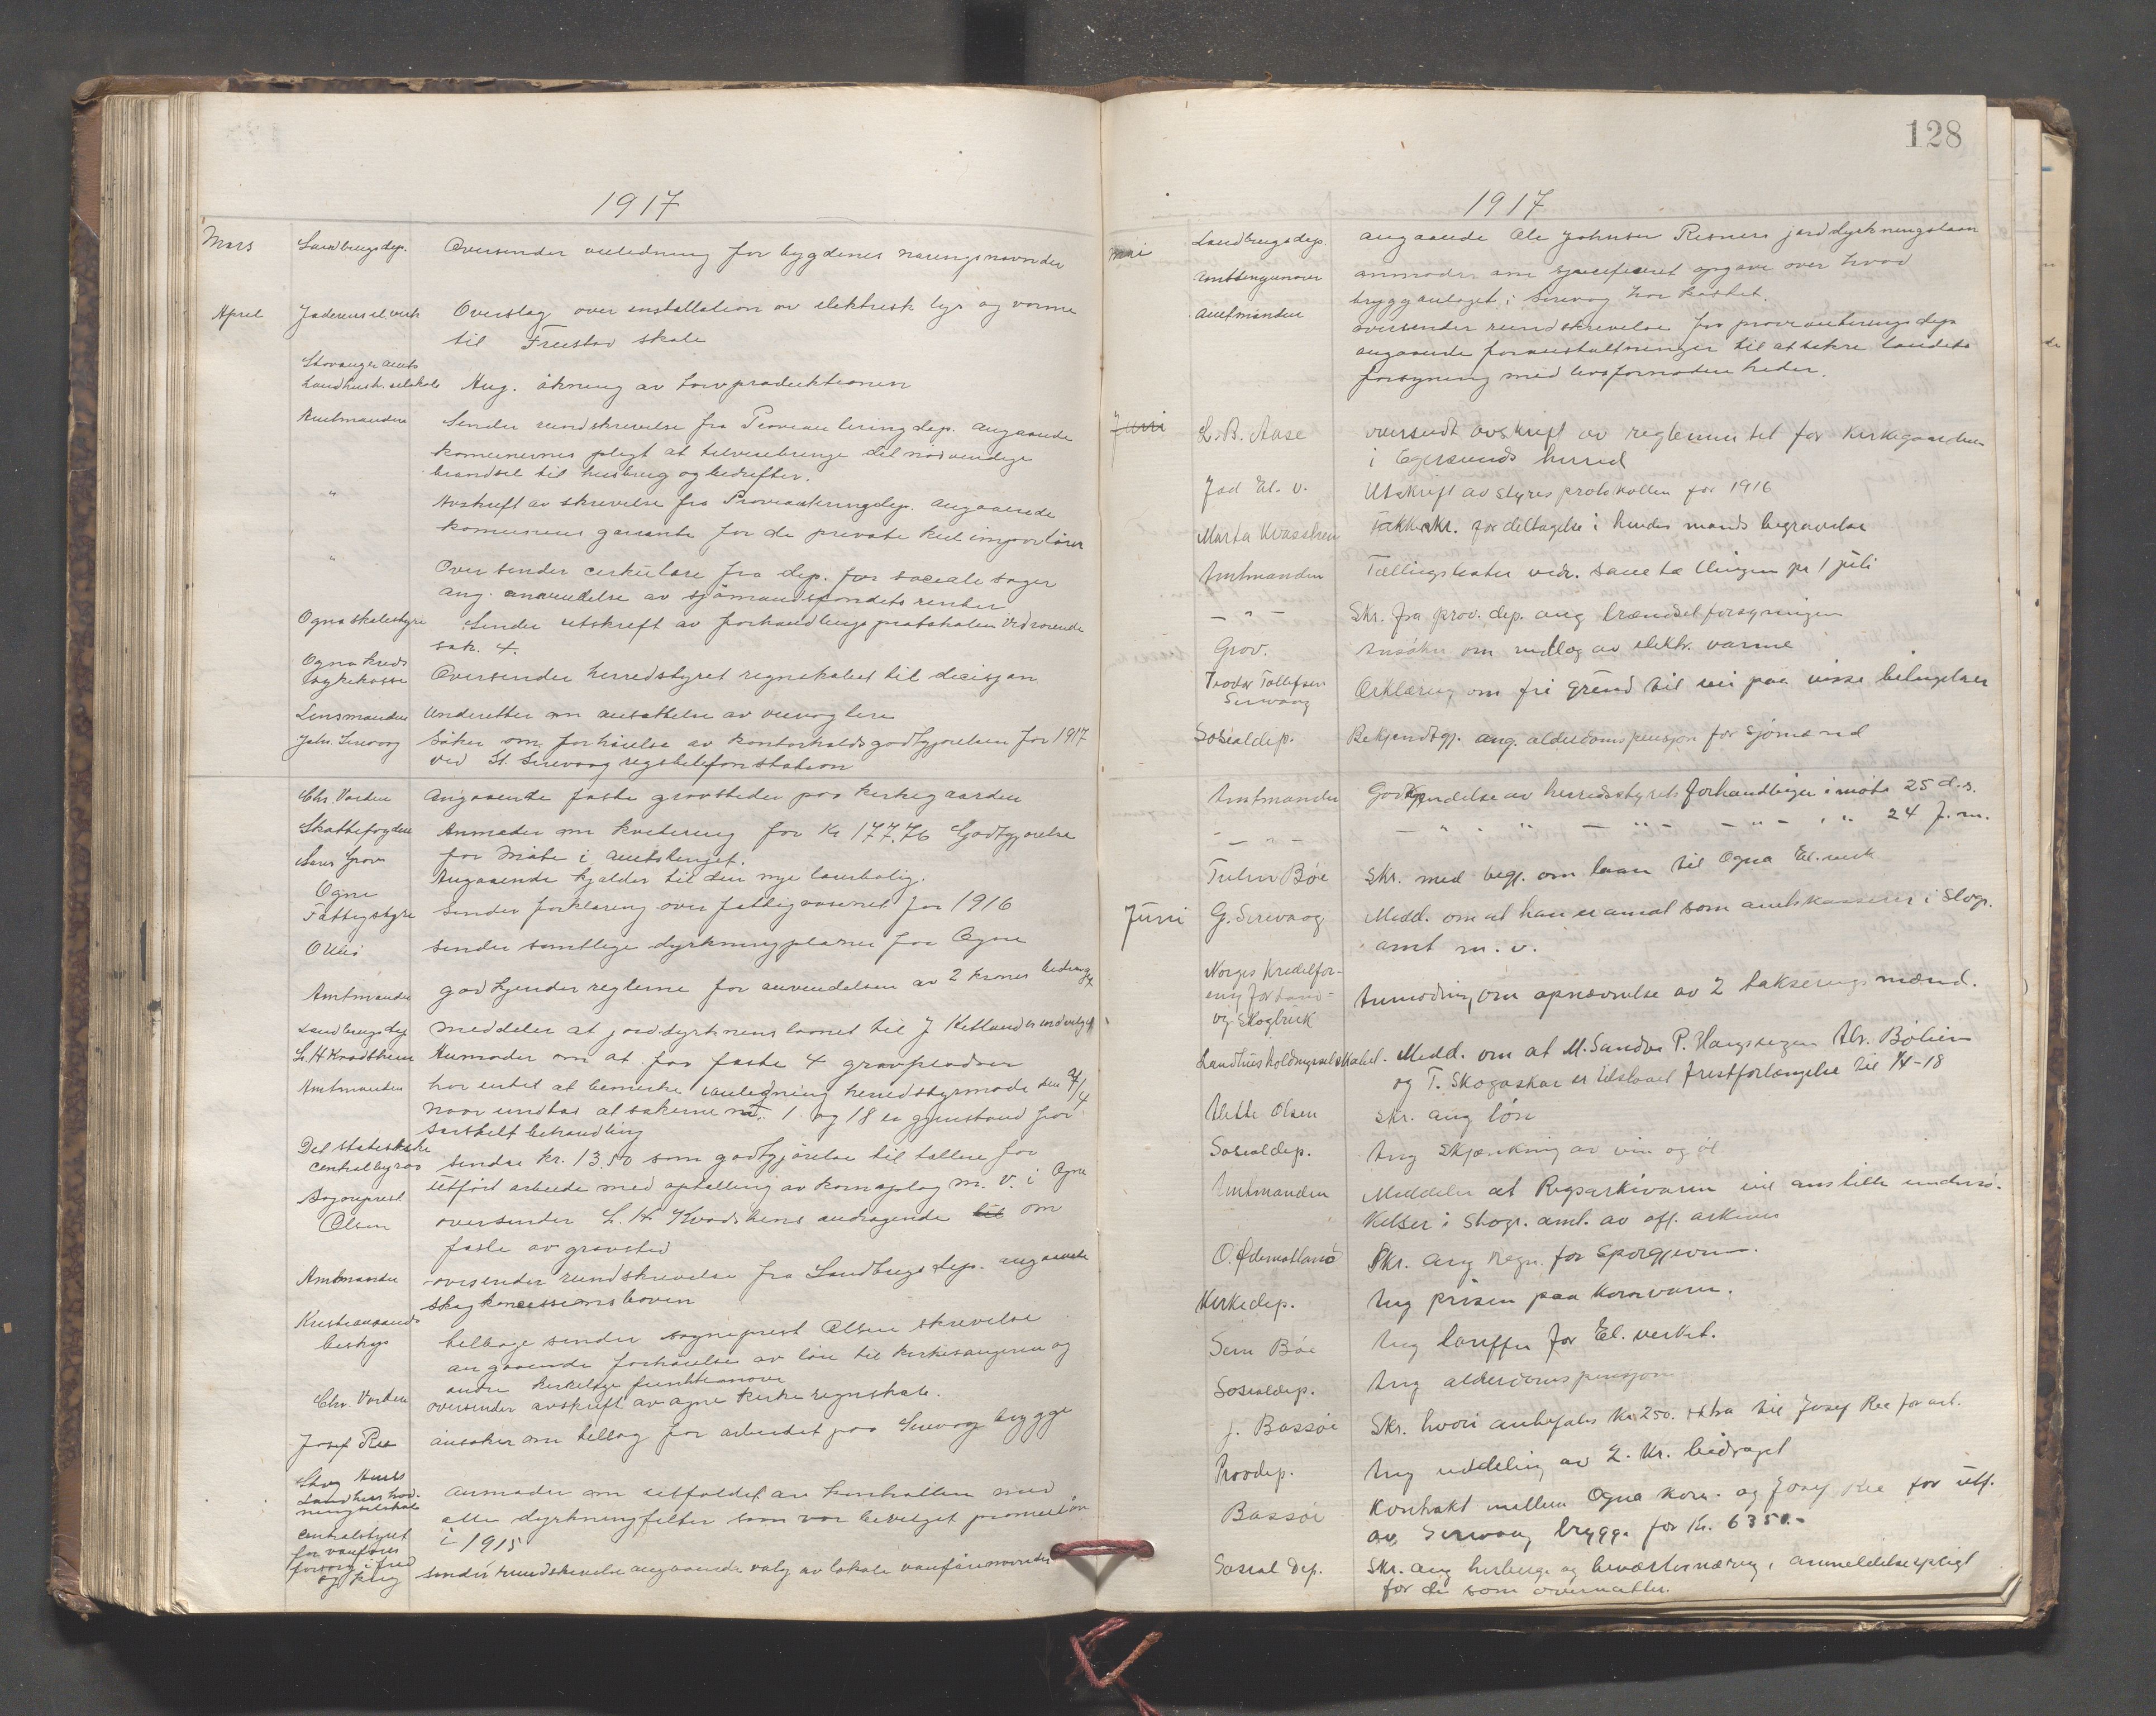 1917
Mars Landbrugsdep. Oversender veiledning for bygdenes næringsnævnder
April Jaderens el.verk Overslag over installation av elektrisk lys og varme
til Fuestad skole
Stavanger amts
Landhush. selskab Ang. økning av torvproduktionen
Amtmanden Sender rundskrivelse fra Provianteringdep. angaaende
komunernes pligt at tilveiebringe det nødvendige
brændsel til husbrug og bedrifter.
" Avskrift av skrivelse fra Provianteringdep. angaaende
komunenes garante for de private kulimportører
" Over sender cirkulære fra dep. for sociale sager
ang. anvendelse av sjømandsfondets renter
Ogna skolestyre Sender utskrift av forhandlings protokolen vedrørende
sak. 4.
Ogna kreds
sykekasse Oversender herredstyret regnskabet til decisjon
Lensmanden Underetter om ansættelse av
Johs. Sirevaag Søker om forhøielse av kontorholdsgodtgjørelsen for 1917
ved St. Sirevaag rigstelefonstation
Chr. Varden Angaaende faste gravsteder paa kirkegaarden
Skattefogden Anmoder om kvitering for kr 177,76 Godtgjørelse
for Møte i amtstinget.
Lars Grov Angaaende kjelder til den nye lærerbolig.
Ogne
Fattigstyre Sender forklaring over fattigvæsenet for 1916
Ollis sender samtlige dyrkningsplaner for Ogne
Amtmanden godkjender reglerne for anvendelsen av 2 kroner bidraget
Landbrugsdep meddeler at jorddyrknings laanet til J Ketland er indvilget
L. H Kvadsheim Anmoder om at faa fæste 4 gravpladser
Amtmanden har intet at bemerke i anledning herredstyrmøde den 2/4
naar undtas at sakerne nr. 1 og 18 er gjenstand for
særskilt behandling
Det statestiske
Centralbyraa sender kr. 13,50 som godtgjørelse til tællere for
utført arbeide med optælling av kornoplag m. v. i Ogne
Sogneprest
Olsen oversender L. H Kvadsheims andragende til om
fæste av gravsted
Amtmanden oversender rundskrivelse fra Landbrugsdep. angaaende
skogkoncessionsloven
Kristiansands
biskop tilbage sender sogneprest Olsens skrivelse
angaaende forhøielse av løn til kirkesangeren og
andre kirkelige funktionærer
Chr. Varden oversender avskrift av ogne kirke regnskab.
Josef Ree ansøker om tillæg for arbeidet paa Sirevaag brygge
Stvg Amts
Landhushold-
ningselskab anmoder om utfyldet av kontrollen med
alle dyrkningsfelter som var bevilget premielaan
i 1915
Centralstyret
for vanføres
forsorg i fred
og krig sender rundskrivelse angaaende valg av lokale vanførenevnder
128
1917
Mai Landbrugsdep. angaaende Ole Johnsen Risnes jorddyrkningslaan
Amtsingeniøren anmoder om specificeret opgave over hvad
bryggeanlæget i Sirevaag har kostet.
Amtmanden oversender rundskrivelse fra provianteringsdep
angaaende foranstaltninger til at sikre landets
forsyning med livsfornødenheder.
Juni L. B. Aase oversendt avskrift av reglementet for kirkegaarden
i Egersunds herred
Jæd El. v. Utskrift av styres protokollen for 1916
Marta Kvassheim Takkeskr. for deltagelse i hendes mands begravelse
Amtmanden Tællingslister vedr. saue tællingen pr 1 juli
— " — Skr. fra prov. dep. ang brændselforsyningen
Grov. Ansøker om indlæg av elektr. varme
Teodor Tollefsen
Sirevaag Erklæring om fri grund til vei paa visse betingelser
Sosialdep. Bekjendtgj. ang. alderdomspensjon for sjømænd
Amtmanden Godkjendelse av herredsstyrets forhandlinger i møte 25 d.s.
— " — — " — " — " — " — " 24 f. m.
Tulin Bøe Skr. med begj. om laan til Ogna El.verk
Juni G. Sirevaag Medd. om at han er ansat som amtskasserer i Stvgr.
amt m. v.
Norges Kreditfor-
ening for Land-
og Skogbruk Anmodning om opnævnelse av 2 takseringsmænd.
Landhusholdningselskabet. Medd. om at M. Sandve P. Haugstegen Alv. Bøhlien
og T. Skogaskar er tilstaaet fristforlængelse til 1/4-18
Alette Olsen Skr. ang løn
Sosialdep. Ang Skjænkning av vin og øl
Amtmanden Meddeler at Rigsarkivaren vil anstille undersø-
kelser i Stvgr. amt. av off. arkiver
O. Ødemotland Skr. ang regn. for Sporgjerun.
Kirkedep. Ang prisen paa kornvarer.
Sem Bøe Ang tariffer for El. verket.
Sosialdep. Ang alderdomspensjon
J. Bassøe Skr. hvori anbefales kr 250. ekstra til Josef Ree for arb.
Provdep. Ang utdeling av 2. kr. bidraget
Bassøe Kontrakt mellem Ogna kom. og Josef Ree for utf.
av Sirevaag brygge for kr. 6350.-
Sosial dep. Skr. ang herberge og beværternæring, anmeldelsespligt
for de som overnatter.